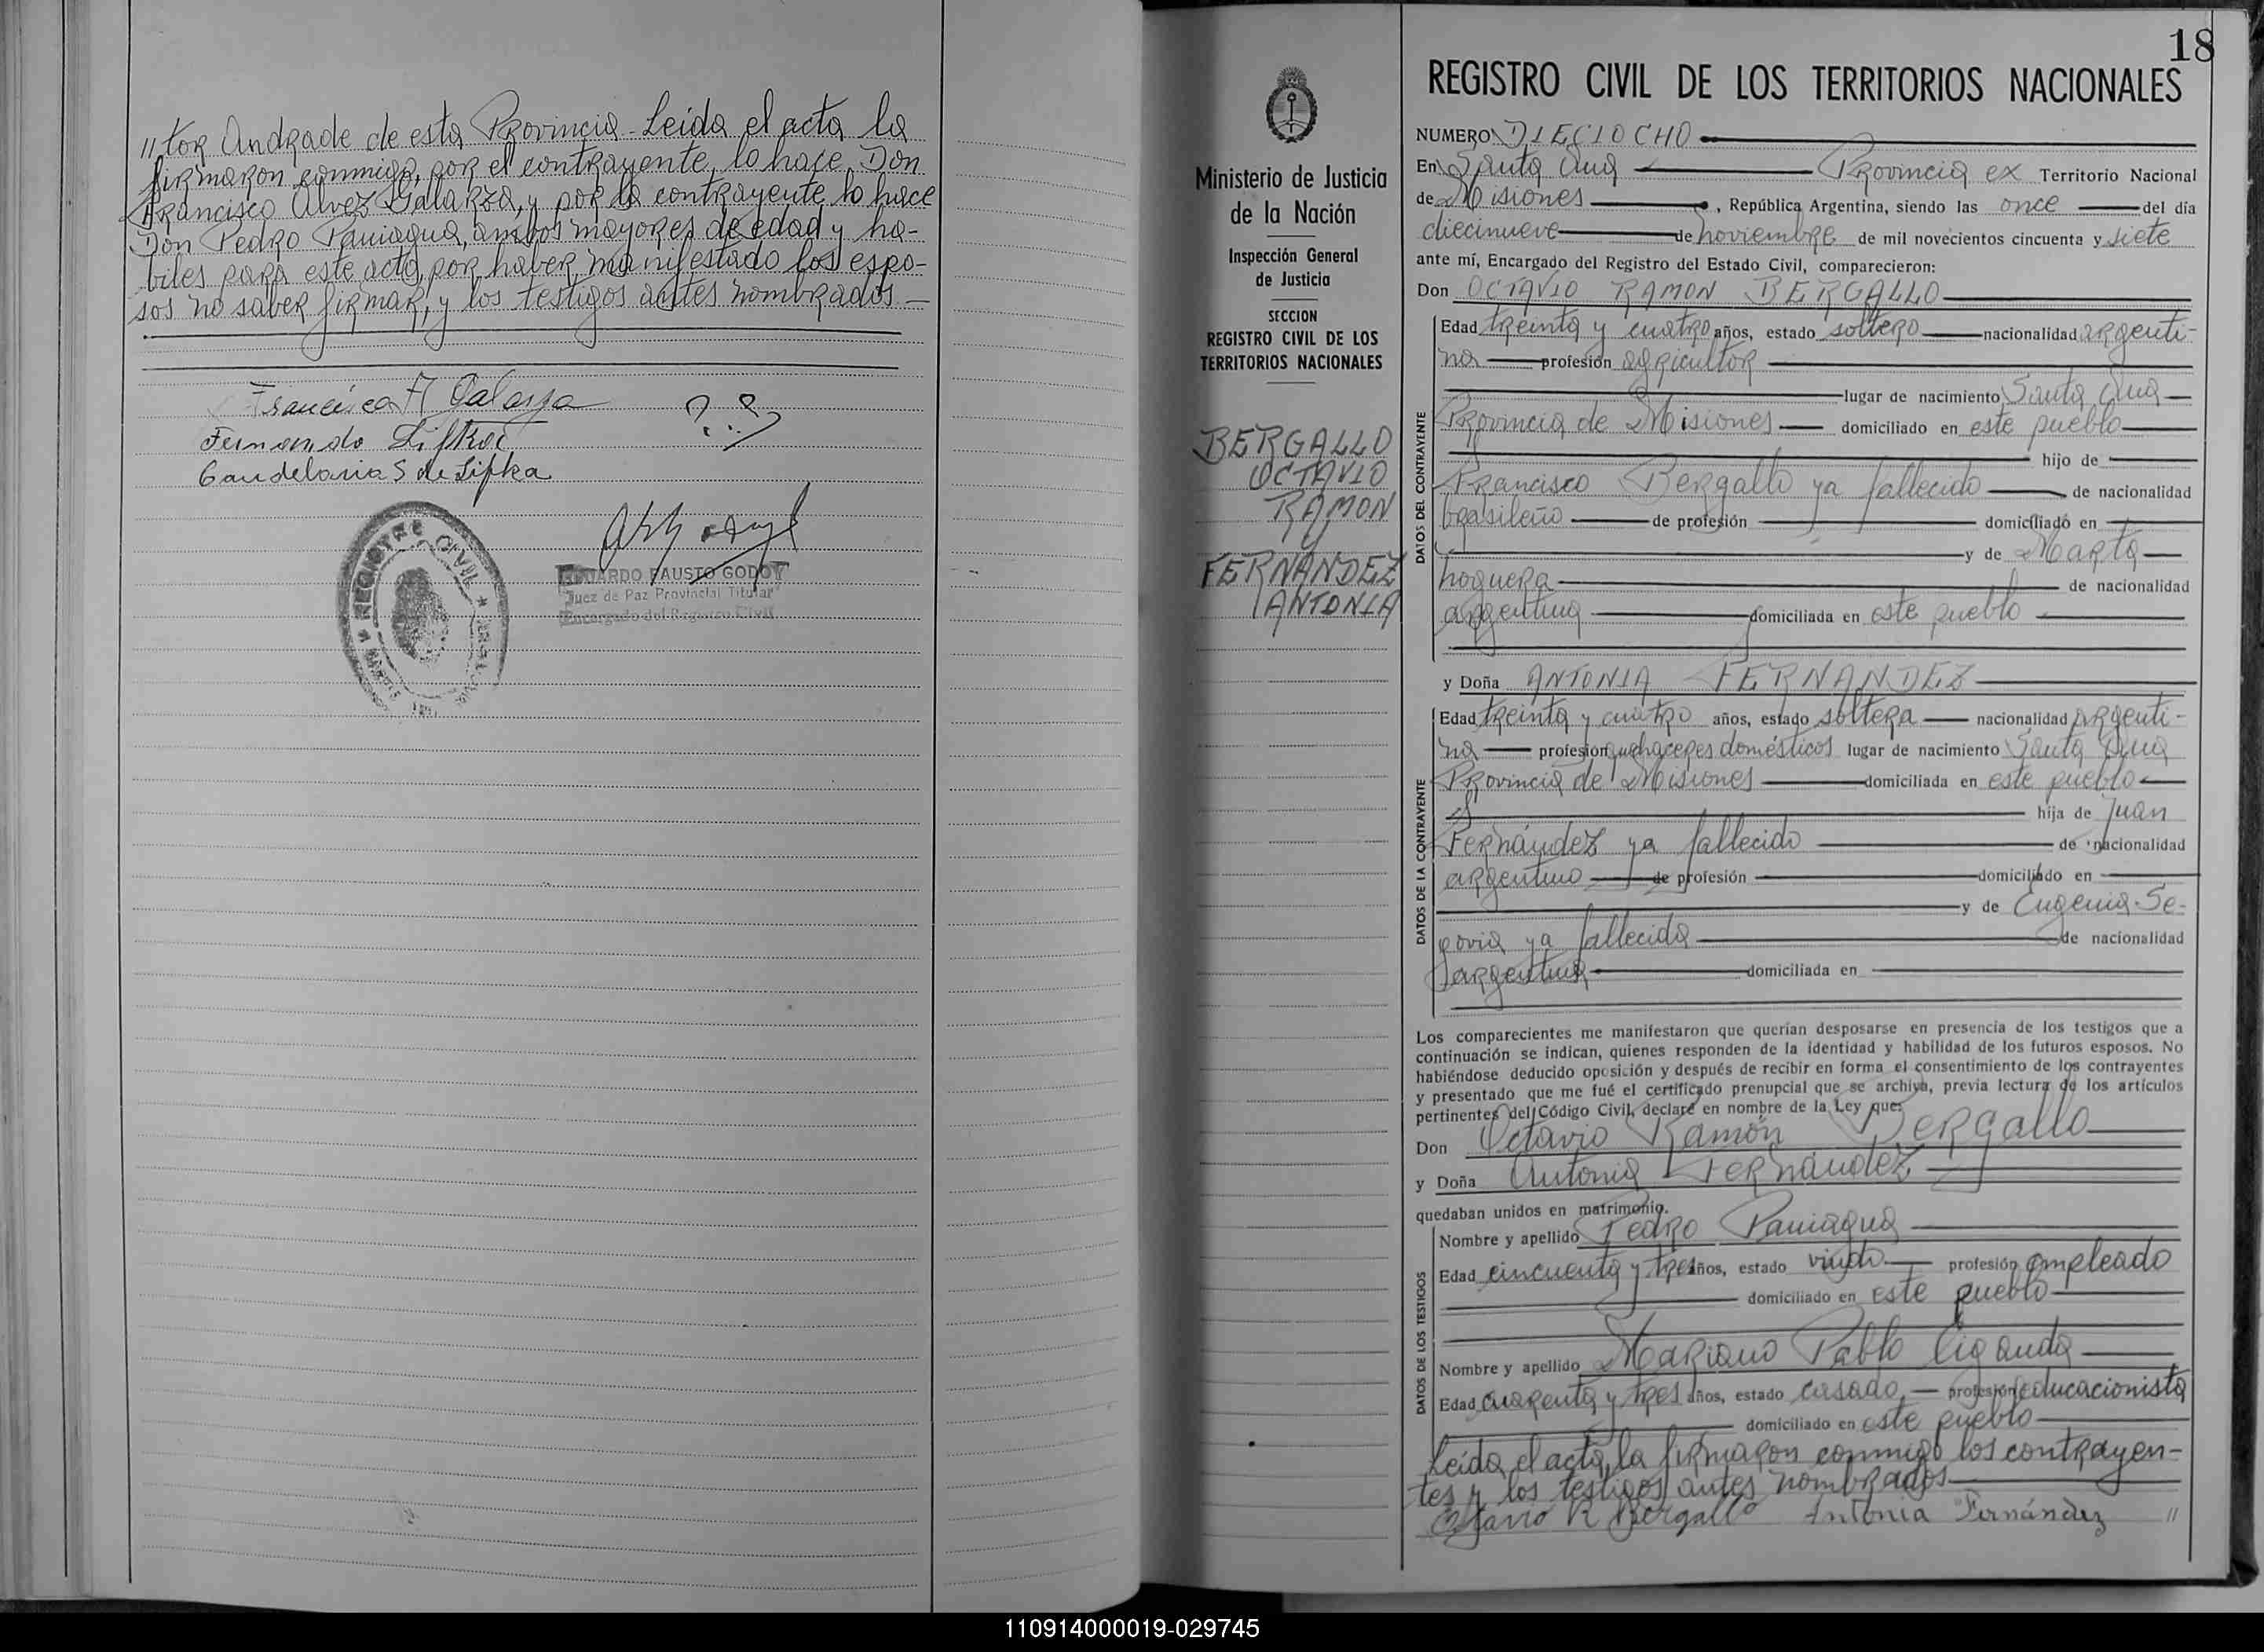 // tor Andrade de esta Provincia - Leida el acta la
firmaron conmigo, por el contrayente, lo hace Don
Francisco Alvez Galarza, y por la contrayente lo hace
Don Pedro Paniagua, ambos mayores de edad y ha-
biles para este acto, por haber manifestado los espo-
sos no saber firmar, y los testigos antes nombrados -
Francisco A Galarza
Fernando Lifka
Candelaria S de Lifka
REGISTRO CIVIL
EDUARDO FAUSTO GODOY
Juez de Paz Provincial Titular
Encargado del Registro Civil
Ministerio de Justicia
de la Nación
Inspección General
de Justicia
SECCION
REGISTRO CIVIL DE LOS
TERRITORIOS NACIONALES
BERGALLO
OCTAVIO
RAMON
FERNANDEZ
ANTONIA
18
REGISTRO CIVIL DE LOS TERRITORIOS NACIONALES
NUMERO DIECIOCHO
En Santa Ana Provincia ex Territorio Nacional
de Misiones, República Argentina, siendo las once del día
diecinueve de noviembre de mil novecientos cincuenta y siete
ante mí, Encargado del Registro del Estado Civil, comparecieron:
Don OCTAVIO RAMON BERGALLO
DATOS DEL CONTRAYENTE
Edad treinta y cuatro años, estado soltero nacionalidad argenti-
na profesión agricultor
lugar de nacimiento Santa Ana
Provincia de Misiones domiciliado en este pueblo
hijo de
Francisco Bergallo ya fallecido de nacionalidad
brasileño de profesión domiciliado en
y de Marta
noguera de nacionalidad
argentina domiciliada en este pueblo
y Doña ANTONIA FERNANDEZ
DATOS DE LA CONTRAYENTE
Edad treinta y cuatro años, estado soltera nacionalidad argenti-
na profesión quehaceres domésticos lugar de nacimiento Santa Ana
Provincia de Misiones domiciliada en este pueblo
hija de Juan
Fernández ya fallecido de nacionalidad
argentino de profesión domiciliado en
y de Eugenia Se-
govia ya fallecida de nacionalidad
argentina domiciliada en
Los comparecientes me manifestaron que querían desposarse en presencia de los testigos que a
continuación se indican, quienes responden de la identidad y habilidad de los futuros esposos. No
habiéndose deducido oposición y después de recibir en forma el consentimiento de los contrayentes
y presentado que me fué el certificado prenupcial que se archiva, previa lectura de los artículos
pertinentes del Código Civil, declaré en nombre de la Ley que:
Don Octavio Ramón Bergallo
y Doña Antonia Fernández
quedaban unidos en matrimonio.
DATOS DE LOS TESTIGOS
Nombre y apellido Pedro Paniagua
Edad cincuenta y tres años, estado viudo profesión empleado
domiciliado en este pueblo
Nombre y apellido Mariano Pablo Ciganda
Edad cuarenta y tres años, estado casado profesión educacionista
domiciliado en este pueblo
Leida el acta, la firmaron conmigo los contrayen-
tes y los testigos antes nombrados
Octavio R Bergallo Antonia Fernández //
110914000019-029745